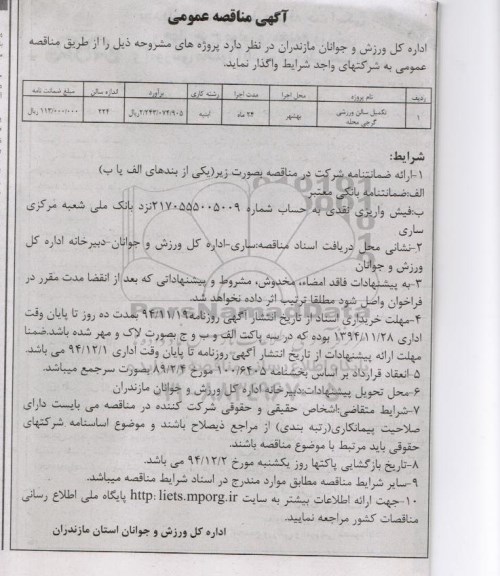 آگهی مناقصه عمومی
اداره کل ورزش و جوانان مازندران در نظر دارد پروژه های مشروحه ذیل را از طریق مناقصه
عمومی به شرکتهای واجد شرایط واگذار نماید.
ردیف نام پروژه محل اجرا مدت اجرا رشته کاری برآورد اندازه سالن مبلغ ضمانت نامه
۱ تکمیل سالن ورزشی گرجی محله بهشهر ۲۴ ماه ابنیه ۲/۲۴۳/۰۷۴/۹۰۵ریال ۲۲۴ ۱۱۳/۰۰۰/۰۰۰ ریال
شرایط:
۱-ارائه ضمانتنامه شرکت در مناقصه بصورت زیر(یکی از بندهای الف یا ب)
الف:ضمانتنامه بانکی معتبر
ب:فیش واریزی نقدی به حساب شماره ۲۱۷۰۵۵۵۰۰۵۰۰۹نزد بانک ملی شعبه مرکزی
ساری
۲-نشانی محل دریافت اسناد مناقصه:ساری-اداره کل ورزش و جوانان-دبیرخانه اداره کل
ورزش و جوانان
۳-به پیشنهادات فاقد امضاء، مخدوش، مشروط و پیشنهاداتی که بعد از انقضا مدت مقرر در
فراخوان واصل شود مطلقا ترتیب اثر داده نخواهد شد.
۴-مهلت خریداری اسناد از تاریخ انتشار آگهی روزنامه۹۴/۱۱/۱۹ بمدت ده روز تا پایان وقت
اداری ۱۳۹۴/۱۱/۲۸ بوده که در سه پاکت الف و ب و ج بصورت لاک و مهر شده باشد.ضمنا
مهلت ارائه پیشنهادات از تاریخ انتشار آگهی روزنامه تا پایان وقت اداری ۹۴/۱۲/۱ می باشد.
۵-انعقاد قرارداد بر اساس بخشنامه ۱۰۰/۶۴۰۵ مورخ ۸۹/۲/۴بصورت سرجمع میباشد.
۶-محل تحویل پیشنهادات:دبیرخانه اداره کل ورزش و جوانان مازندران
۷-شرایط متقاضی:اشخاص حقیقی و حقوقی شرکت کننده در مناقصه می بایست دارای
صلاحیت پیمانکاری(رتبه بندی) از مراجع ذیصلاح باشند و موضوع اساسنامه شرکتهای
حقوقی باید مرتبط با موضوع مناقصه باشند.
۸-تاریخ بازگشایی پاکتها روز یکشنبه مورخ ۹۴/۱۲/۲ می باشد.
۹-سایر شرایط مناقصه مطابق موارد مندرج در اسناد شرایط مناقصه میباشد.
۱۰-جهت ارائه اطلاعات بیشتر به سایت http: liets.mporg.ir پایگاه ملی اطلاع رسانی
مناقصات کشور مراجعه نمایید.
اداره کل ورزش و جوانان استان مازندران